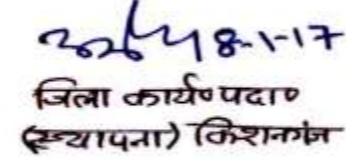 8-1-17
जिला कार्य० पदा०
(स्थापना) किशनगंज